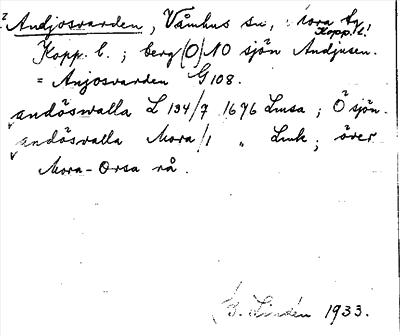 ² Andjosvarden, Våmhus sn, Mora tg
Kopp. l.!
Kopp. l.; berg (O) NO sjön Andjusen.
= Anjosvarden G 108.
andöswalla L 194/7 1676 Linsa; Ö² sjön.
andöswalla Mora/1 „ Link; över
Mora-Orsa rå.
G. Lindén 1933.